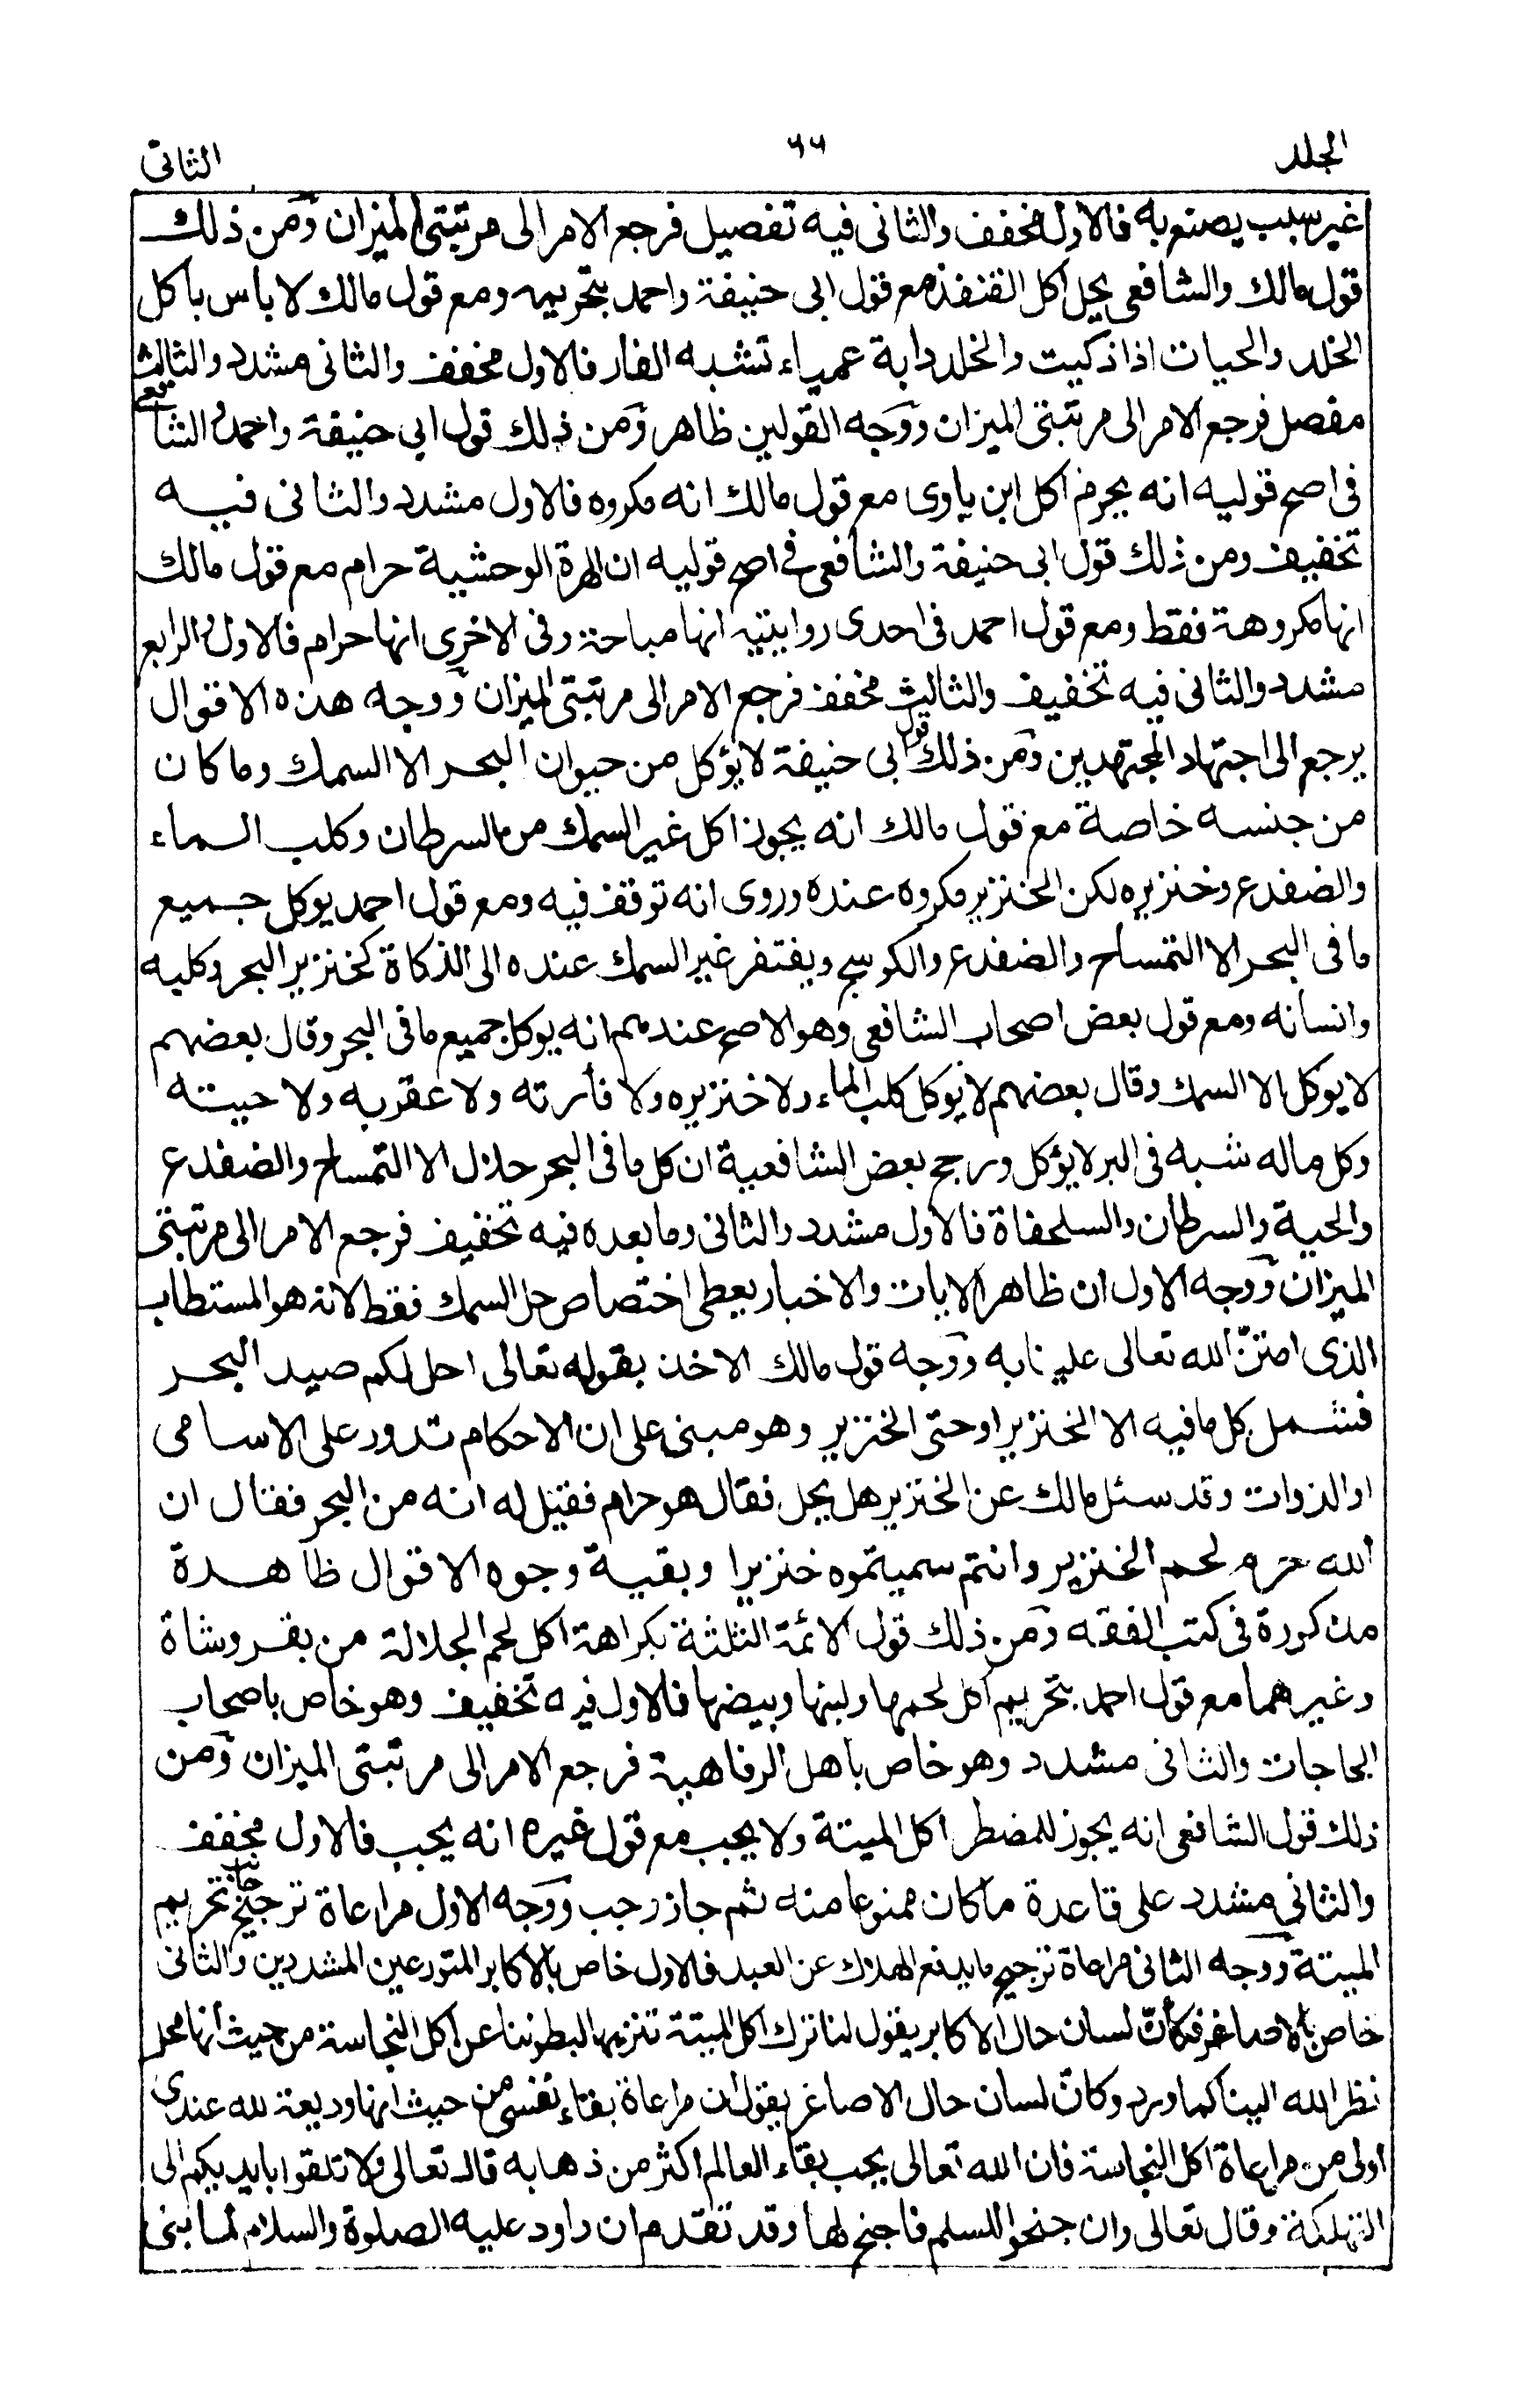 الجلد ٦٦ الثانى
غير سبب يصنع به فالاول مخفف والثانى فيه تفصيل فرجع الامر الى مرتبتى الميزان ومن ذلك
قول مالك والشافعى يحل اكل القنفذ مع قول ابى حنيفة واحمد بتحريمه ومع قول مالك لا باس باكل
الخلد والحيات اذا ذكيت والخلد دابة عمياء تشبه الفار فالاول مخفف والثانى مشدد والثالث
مفصل فرجع الامر الى مرتبتى الميزان ووجه القولين ظاهر ومن ذلك قول ابى حنيفة واحمد والشافعى
فى اصح قوليه انه يحرم اكل ابن ياوى مع قول مالك انه مكروه فالاول مشدد والثانى فيه
تخفيف ومن ذلك قول ابى حنيفة والشافعى فى اصح قوليه ان الهرة الوحشية حرام مع قول مالك
انها مكروهة فقط ومع قول احمد فى احدى روايتيه انها مباحة وفى الاخرى انها حرام فالاول والرابع
مشدد والثانى فيه تخفيف والثالث مخفف فرجع الامر الى مرتبتى الميزان ووجه هذه الاقوال
يرجع الى اجتهاد المجتهدين ومن ذلك قول ابى حنيفة لا يؤكل من حيوان البحر الا السمك وما كان
من جنسه خاصة مع قول مالك انه يجوز اكل غير السمك من السرطان وكلب الماء
والضفدع وخنزيره لكن الخنزير مكروه عنده وروى انه توقف فيه ومع قول احمد يوكل جميع
ما فى البحر الا التمساح والضفدع والكوسج ويفتقر غير السمك عنده الى الذكاة كخنزير البحر وكلبه
وانسانه ومع قول بعض اصحاب الشافعى وهو الاصح عندهم انه يوكل جميع ما فى البحر وقال بعضهم
لا يوكل الا السمك وقال بعضهم لا يوكل كلب الماء ولا خنزيره ولا فأرته ولا عقربه ولا حيته
وكل ماله شبه فى البر لا يؤكل ورجح بعض الشافعية ان كل ما فى البحر حلال الا التمساح والضفدع
والحية والسرطان والسلحفاة فالاول مشدد والثانى وما بعده فيه تخفيف فرجع الامر الى مرتبتى
الميزان ووجه الاول ان ظاهر الايات والاخبار يعطى اختصاص حل السمك فقط لانه هو المستطاب
الذى امتنّ الله تعالى علينا به ووجه قول مالك الاخذ بقوله تعالى احل لكم صيد البحر
فشمل كل ما فيه الا الخنزير او حتى الخنزير وهو مبنى على ان الاحكام تدور على الاسامى
او الذوات وقد سئل مالك عن الخنزير هل يحل فقال هو حرام فقيل له انه من البحر فقال ان
الله حرم لحم الخنزير وانتم سميتموه خنزيرا وبقية وجوه الاقوال ظاهرة
مذكورة فى كتب الفقه ومن ذلك قول الائمة الثلثة بكراهة اكل لحم الجلالة من بقر وشاة
وغيرهما مع قول احمد بتحريم اكل لحمها ولبنها وبيضها فالاول فيه تخفيف وهو خاص باصحاب
الحاجات والثانى مشدد وهو خاص باهل الرفاهية فرجع الامر الى مرتبتى الميزان ومن
ذلك قول الشافعى انه يجوز للمضطر اكل الميتة ولا يجب مع قول غيره انه يجب فالاول مخفف
والثانى مشدد على قاعدة ما كان ممنوعا منه ثم جاز وجب ووجه الاول مراعاة ترجيح جانب تحريم
الميتة ووجه الثانى مراعاة ترجيح ما يدفع الهلاك عن العبد فالاول خاص بالاكابر المتورعين المشددين والثانى
خاص بالاصاغر فكأنّ لسان حال الاكابر يقول لنا ترك اكل الميتة تنزيها لبطوننا عن اكل النجاسة من حيث أنها محل
نظر الله الينا كما ورد وكانّ لسان حال الاصاغر يقول ان مراعاة بقاء نفسى من حيث انها وديعة لله عندى
اولى من مراعاة اكل النجاسة فان الله تعالى يحب بقاء العالم اكثر من ذهابه قال تعالى ولا تلقوا بايديكم الى
التهلكة وقال تعالى وان جنحوا للسلم فاجنح لها وقد تقدم ان داود عليه الصلوة والسلام لما بنى